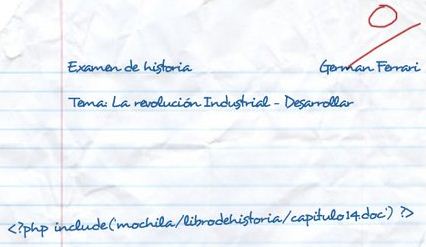 Examen de historia German Ferrari
Tema: La revolución Industrial - Desarrollar
<?php include('mochila/librodehistoria/capitulo14.doc') ?>